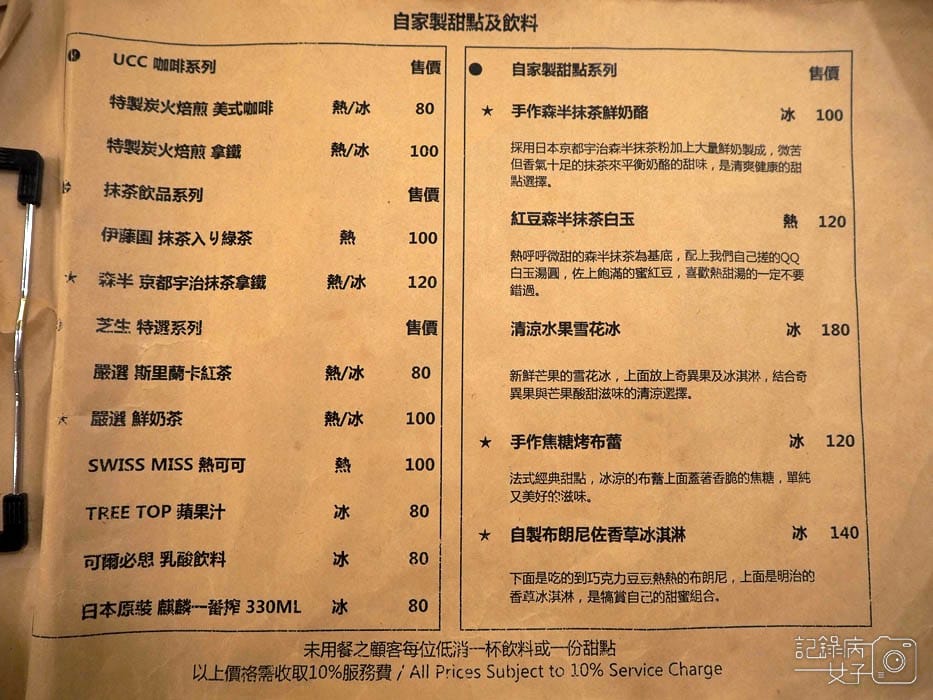 自家製甜點及飲料
UCC 咖啡系列 售價
特製炭火焙煎 美式咖啡 熱/冰 80
特製炭火焙煎 拿鐵 熱/冰 100
抹茶飲品系列 售價
伊藤園 抹茶入り綠茶 熱 100
★ 森半 京都宇治抹茶拿鐵 熱/冰 120
芝生 特選系列 售價
嚴選 斯里蘭卡紅茶 熱/冰 80
★ 嚴選 鮮奶茶 熱/冰 100
SWISS MISS 熱可可 熱 100
TREE TOP 蘋果汁 冰 80
可爾必思 乳酸飲料 冰 80
日本原裝 麒麟一番搾 330ML 冰 80
● 自家製甜點系列 售價
★ 手作森半抹茶鮮奶酪 冰 100
採用日本京都宇治森半抹茶粉加上大量鮮奶製成，微苦
但香氣十足的抹茶來平衡奶酪的甜味，是清爽健康的甜
點選擇。
紅豆森半抹茶白玉 熱 120
熱呼呼微甜的森半抹茶為基底，配上我們自己搓的QQ
白玉湯圓，佐上飽滿的蜜紅豆，喜歡熱甜湯的一定不要
錯過。
清涼水果雪花冰 冰 180
新鮮芒果的雪花冰，上面放上奇異果及冰淇淋，結合奇
異果與芒果酸甜滋味的清涼選擇。
★ 手作焦糖烤布蕾 冰 120
法式經典甜點，冰涼的布蕾上面蓋著香脆的焦糖，單純
又美好的滋味。
★ 自製布朗尼佐香草冰淇淋 冰 140
下面是吃的到巧克力豆豆熱熱的布朗尼，上面是明治的
香草冰淇淋，是犒賞自己的甜蜜組合。
未用餐之顧客每位低消一杯飲料或一份甜點
以上價格需收取10%服務費 / All Prices Subject to 10% Service Charge
記錄病
女子